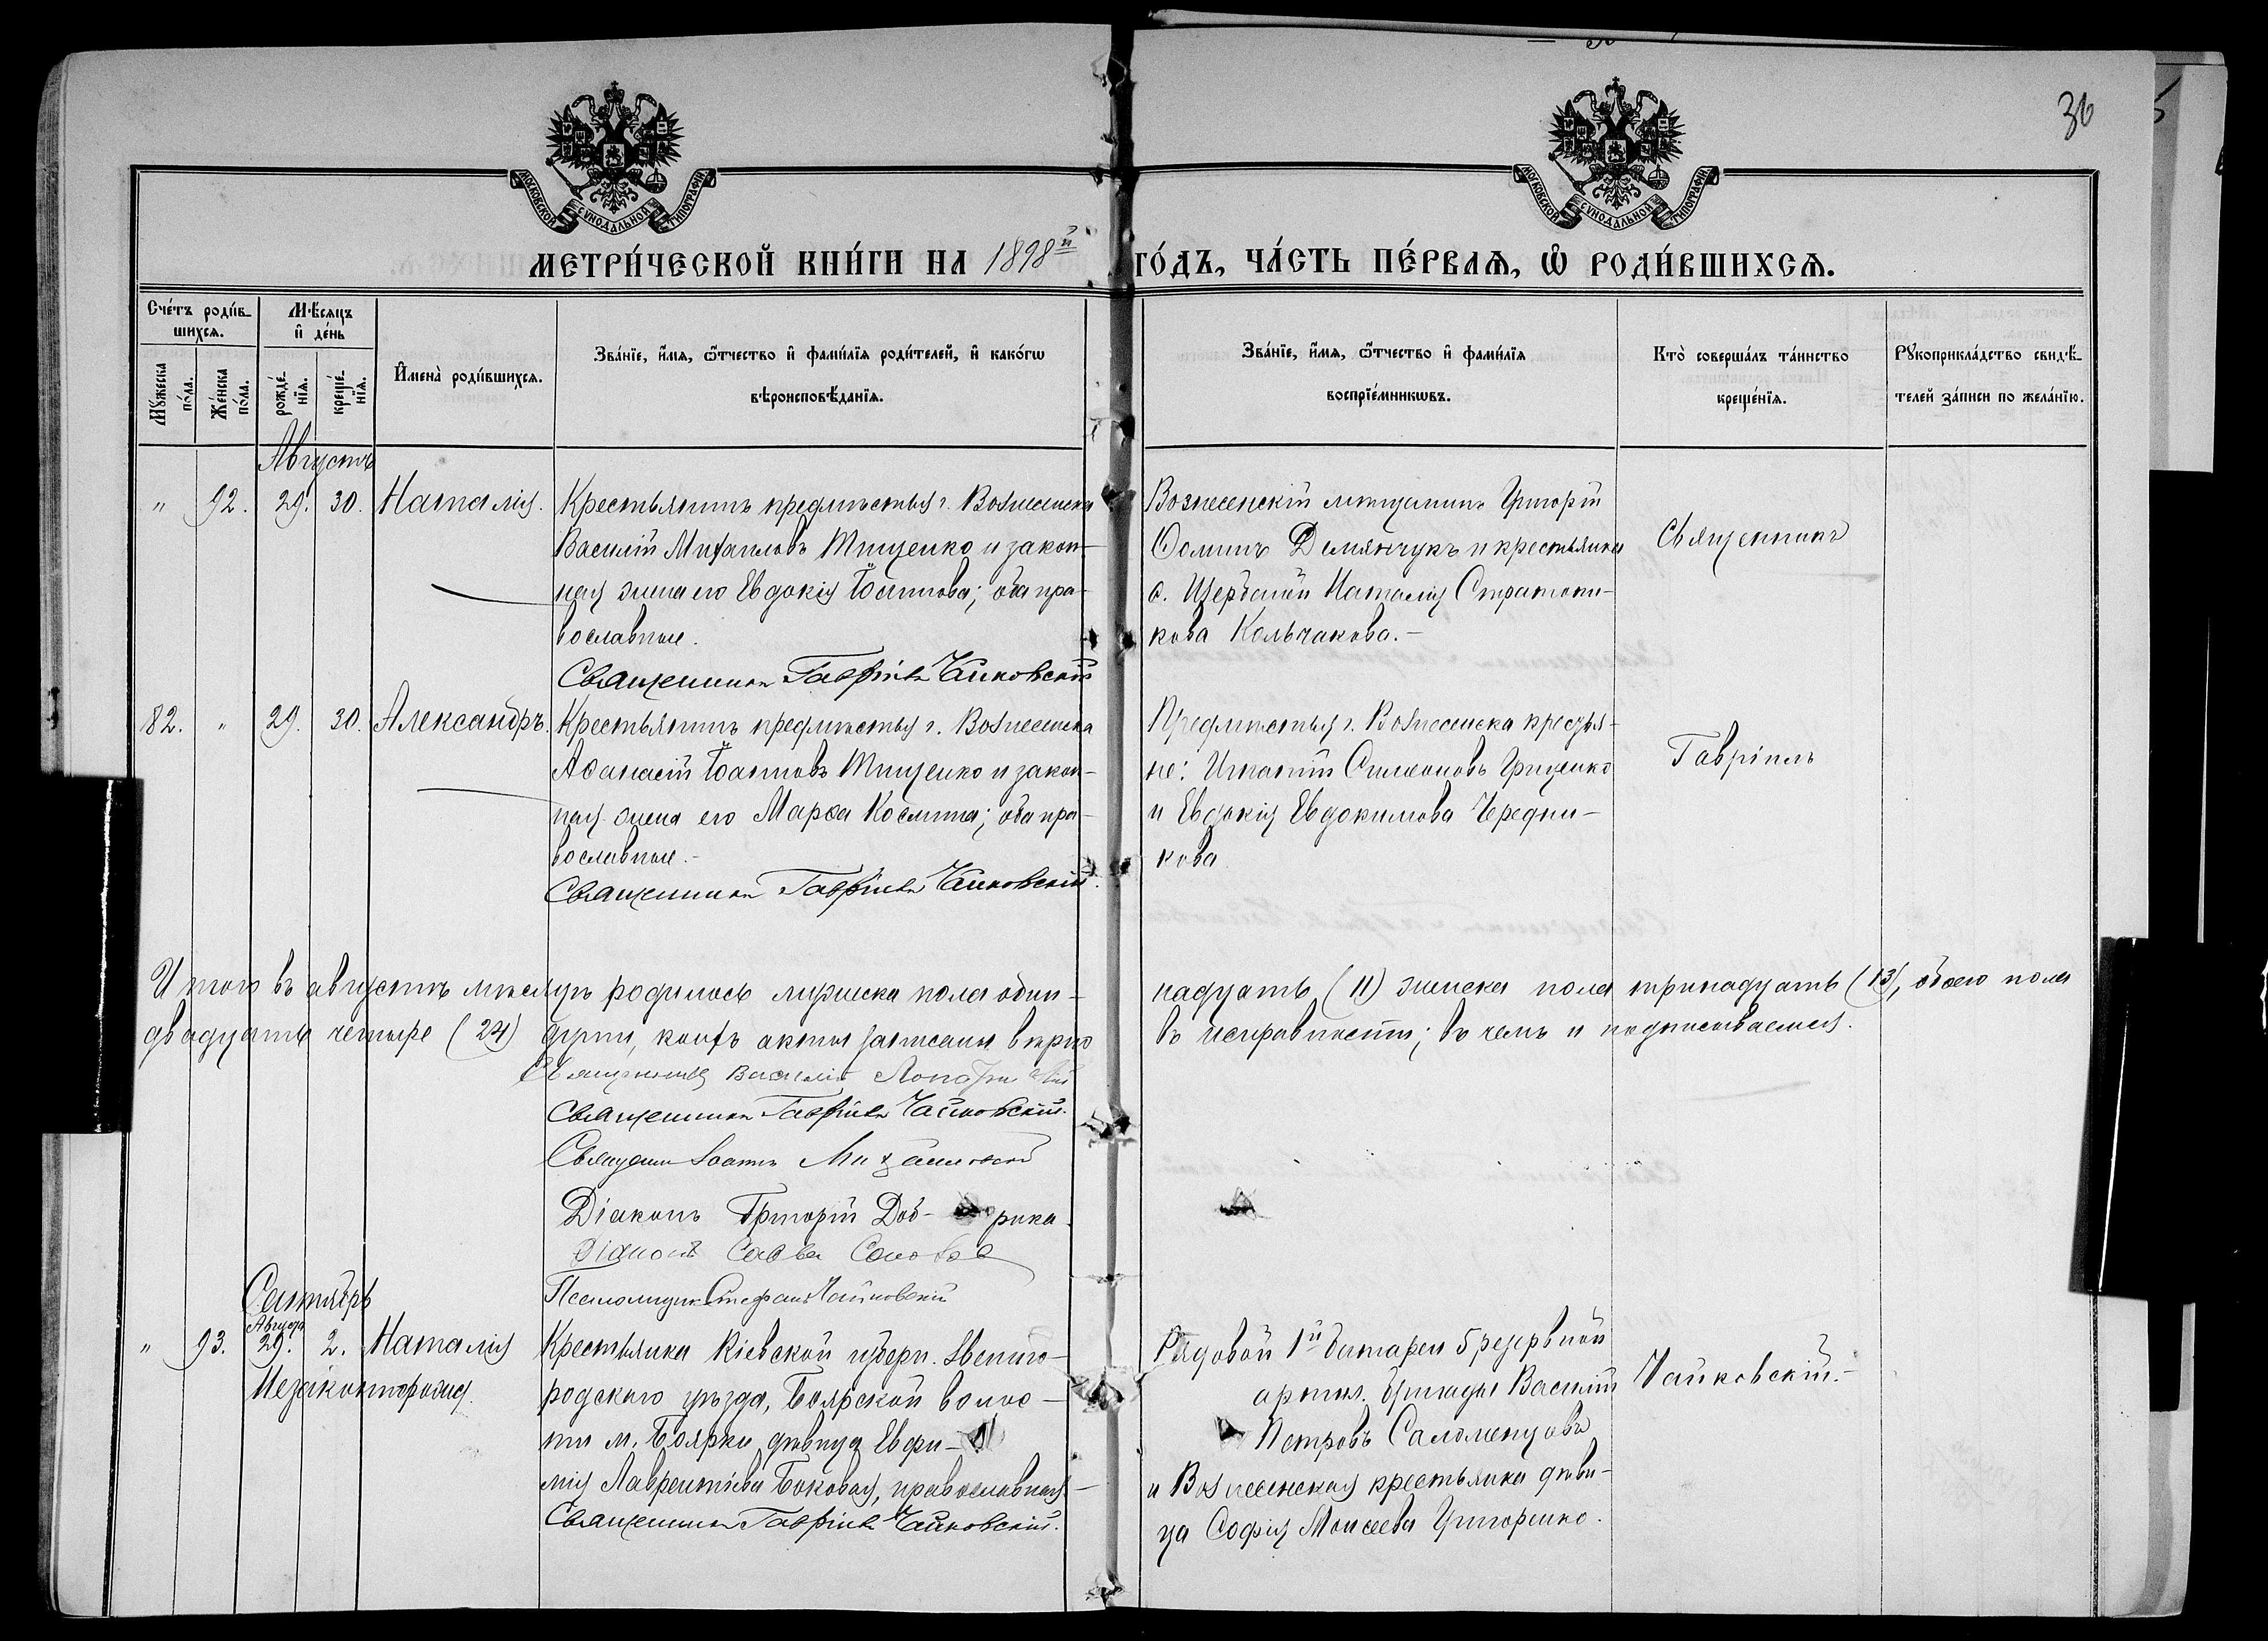 36
МОСКОВСКОЙ СУНОДАЛЬНОЙ ТИПОГРАФІИ
МОСКОВСКОЙ СУНОДАЛЬНОЙ ТИПОГРАФІИ
МЕТРИ́ЧЕСКОЙ КНИ́ГИ НА 1898й ГО́ДЪ, ЧА́СТЬ ПЕ́РВАѦ, Ѡ҆ РОДИ́ВШИХСѦ.
Счетъ роди́вшихсѧ.
Мꙋ́жеска по́ла.
Же́нска по́ла.
Мѣ́сѧцъ и҆ де́нь
рожде́нїѧ.
креще́нїѧ.
И҆мена̀ роди́вшихсѧ.
Зва́нїе, и҆́мѧ, ѻ҆́тчество и҆ фами́лїѧ роди́телей, и҆ како́гѡ
вѣроисповѣ́данїѧ.
Зва́нїе, и҆́мѧ, ѻ҆́тчество и҆ фами́лїѧ
воспрїе́мникѡвъ.
Кто̀ соверша́лъ та́инство
креще́нїѧ.
Рꙋкоприкла́дство свидѣ́-
телей за́писи по жела́нїю.
Августъ
" 92. 29. 30. Наталія.
Крестьянинъ предмѣстья г. Вознесенска
Василій Михаиловъ Тищенко и закон-
ная жена его Евдокія Іоаннова; оба пра-
вославные.
Священникъ Гавріилъ Чайковскій
Вознесенскій мѣщанинъ Григорій
Ѳоминъ Демянчукъ и крестьянка
с. Щербаной Наталія Стратони-
кова Кольчакова.-
Священникъ
82. " 29. 30. Александръ.
Крестьянинъ предмѣстья г. Вознесенска
Аѳанасій Іоанновъ Тищенко и закон-
ная жена его Марѳа Космина; оба пра-
вославные.-
Священникъ Гавріилъ Чайковскій.
Предмѣстья г. Вознесенска крестья-
не: Игнатій Симеоновъ Грищенко
и Евдокія Евдокимова Чередни-
кова
Гавріилъ
Итого въ августѣ мѣсяцѣ родилось мужеска пола один-надцать (11) женска пола тринадцать (13), обоего пола
двадцать четыре (24) души, коихъ акты записаны вѣрно въ исправности; въ чемъ и подписываемся.
Священникъ Василій
Священникъ Гавріилъ Чайковскій.
Священникъ Іоаннъ Михайловскій
Діаконъ Григорій Доб- рика.
Діаконъ Савва
Псаломщикъ Стефанъ Чайковскій
Сентябрь
" 93. Августа 29. 2. Наталія
Незаконнорожд.
Крестьянка Кіевской губерн. Звениго-
родскаго уѣзда, Боярской волос-
ти м. Боярки дѣвица Евфи-
мія Лаврентіева Боковая, православная-
Священникъ Гавріилъ Чайковскій.
Рядовой 1й батареи 5 резервной
артил. бригады Василій
Петровъ Саломенцовъ
и Вознесенская крестьянка дѣви-
ца Софія Моисеева Григоренко.
Чайковскій.-